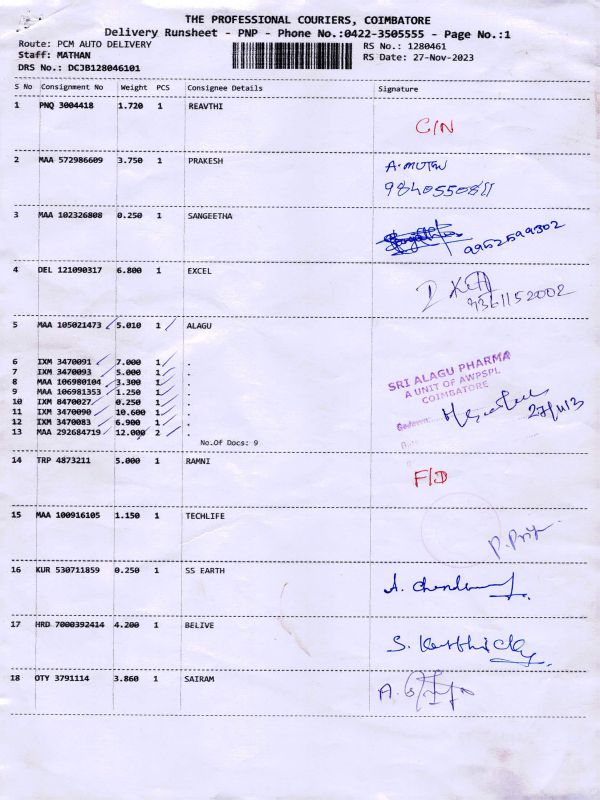 THE PROFESSIONAL COURIERS, COIMBATORE
Delivery Runsheet - PNP - Phone No.:0422-3505555 - Page No.:1
Route: PCM AUTO DELIVERY
RS No.: 1280461
Staff: MATHAN
RS Date: 27-Nov-2023
DRS No.: DCJB128046101
S No Consignment No Weight PCS Consignee Details Signature
1 PNQ 3004418 1.720 1 REAVTHI
C/N
2 MAA 572986609 3.750 1 PRAKESH
A.
3 MAA 102326808 0.250 1 SANGEETHA
9952599302
4 DEL 121090317 6.800 1 EXCEL
5 MAA 105021473 5.010 1 ALAGU
6 IXM 3470091 7.000 1 .
7 IXM 3470093 5.000 1 .
8 MAA 106980104 3.300 1 .
9 MAA 106981353 1.250 1 .
10 IXM 8470027 0.250 1 .
11 IXM 3470090 10.600 1 .
12 IXM 3470083 6.900 1 .
13 MAA 292684719 12.000 2 .
No.Of Docs: 9
SRI ALAGU PHARMA
A UNIT OF AWPSPL
COIMBATORE
14 TRP 4873211 5.000 1 RAMNI
F/D
15 MAA 100916105 1.150 1 TECHLIFE
16 KUR 530711859 0.250 1 SS EARTH
A.
17 HRD 7000392414 4.200 1 BELIVE
S.
18 OTY 3791114 3.860 1 SAIRAM
A.